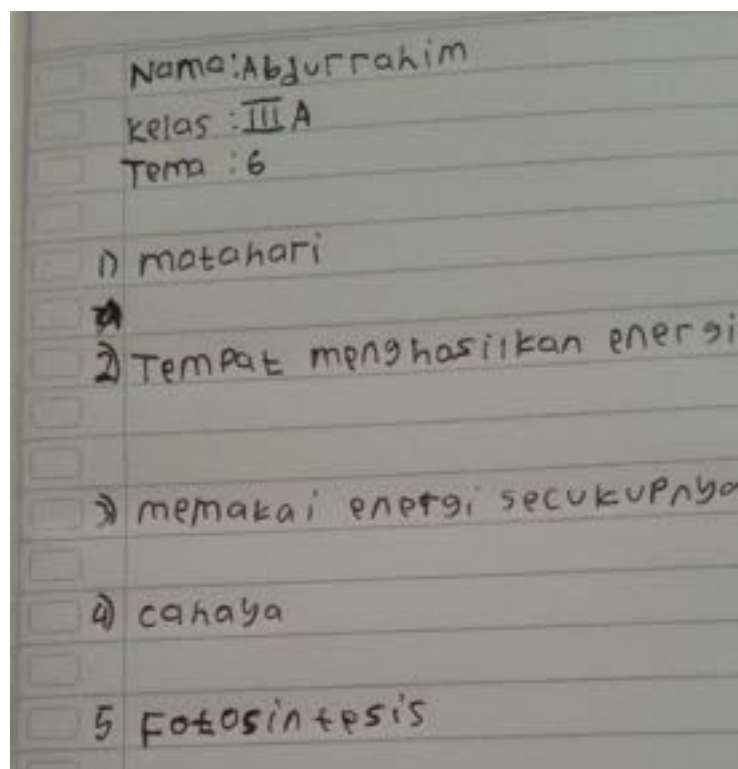 Nama:Abdurrahim
Kelas :III A
Tema :6
1) matahari
2) Tempat menghasilkan energi
3) memakai energi secukupnya
4) cahaya
5 Fotosintesis